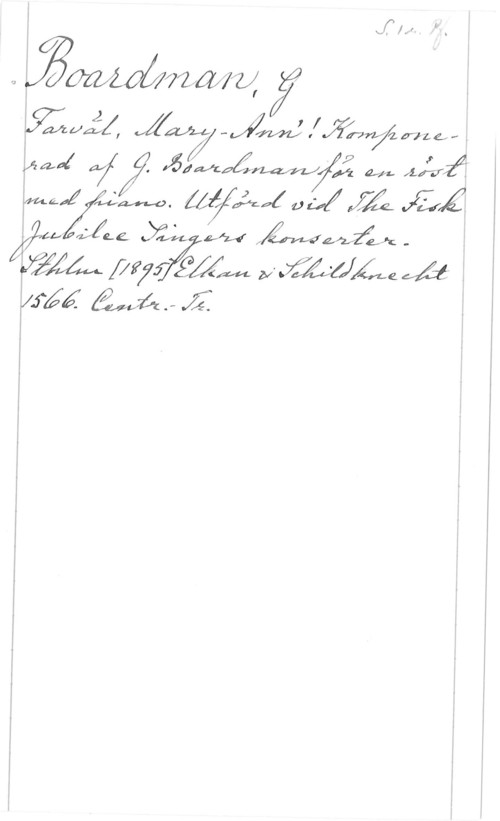 S. 1 r. Pf.
Boardman, G
Farväl, Mary-Ann'! Kompone-
rad af G. Boardman för en röst
med piano. Utförd vid The Fisk
Jubilee Singers konserter.
Sthlm [1895] Elkan & Schildknecht
1566. Centr.-Tr.